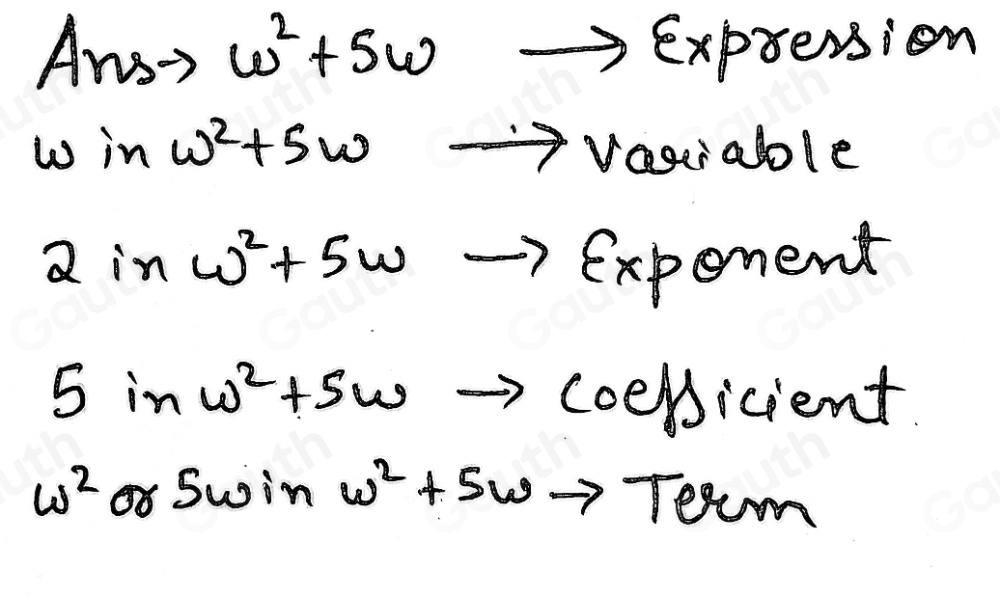 Ans→ w²+5w → Expression
w in w²+5w → Variable
2 in w²+5w → Exponent
5 in w²+5w → Coefficient.
w² or 5w in w²+5w → Term